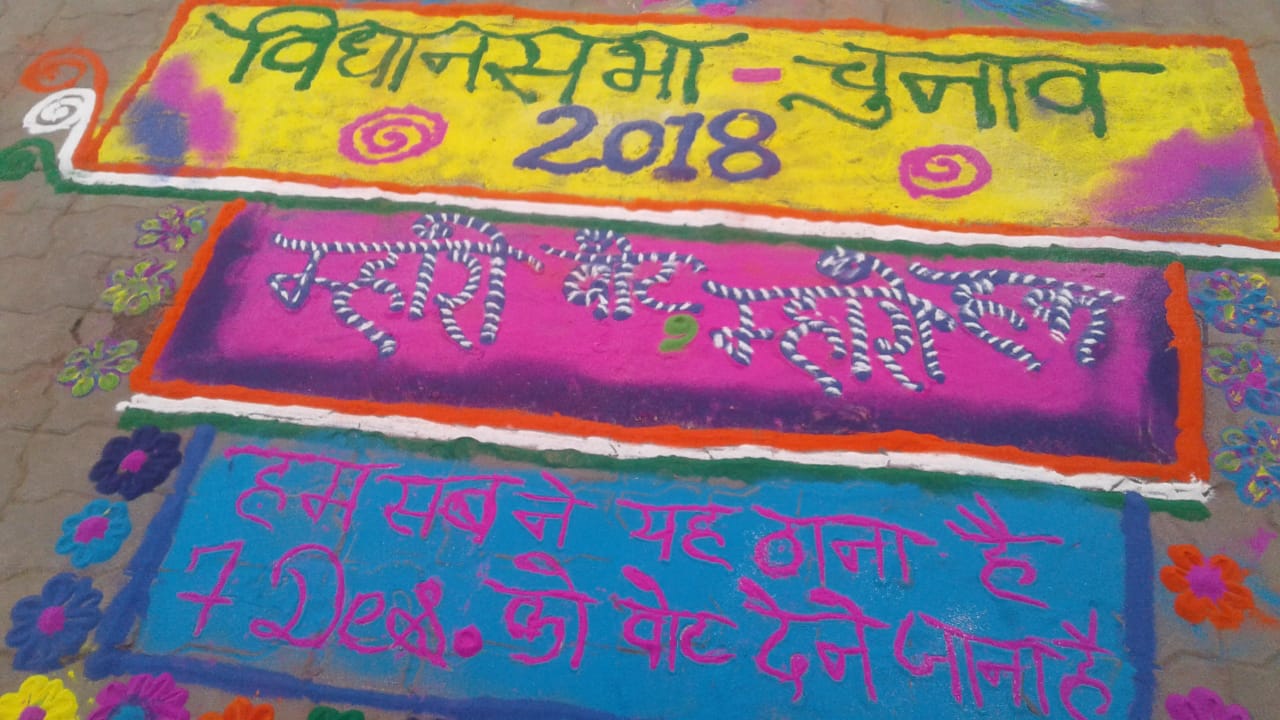 विधानसभा - चुनाव
2018
म्हारो वोट, म्हारो
हम सब ने यह ठाना है
7 Des. को वोट देने जाना है